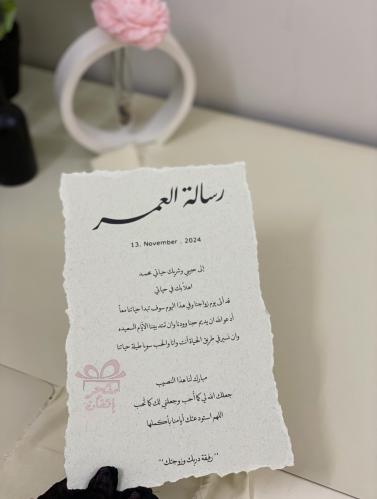 رسالة العمر
13. November . 2024
إلى حبيبي وشريك حياتي محمد
اهلاً بك في حياتي
قد أتى يوم زواجنا وفي هذا اليوم سوف تبدا حياتنا معاً
أدعو الله ان يديم حبنا وودنا وان تمتد بيننا الأيام السعيده
وان نسير في طريق الحياة أنت وانا والحب سويا طيلة حياتنا
مبارك لنا هذا النصيب
جعلك الله لي كما أُحب وجعلني لك كما تُحب
اللهم استودعتك أيامنا بأكملها
"رفيقة دربك وزوجتك"